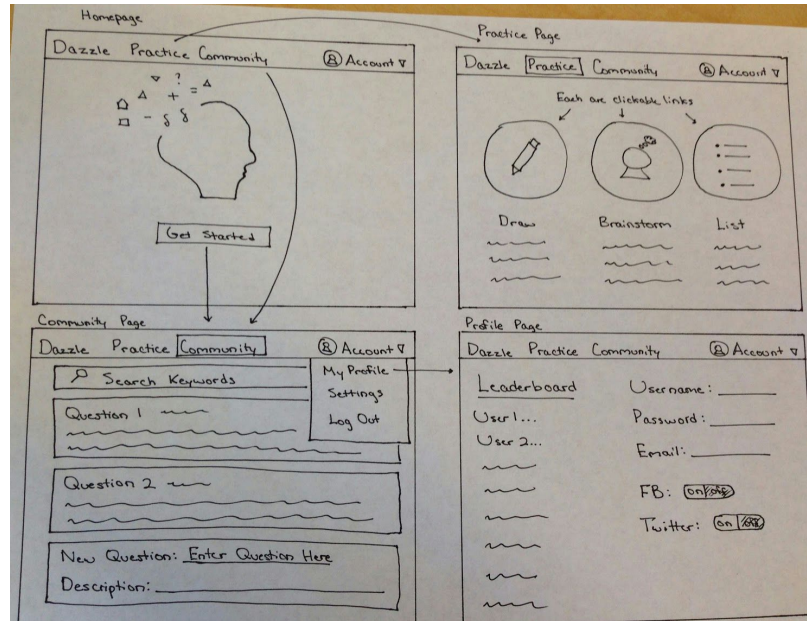 Homepage
Dazzle Practice Community Account
?
+ =
-
Get Started
Practice Page
Dazzle Practice Community Account
Each are clickable links
Draw Brainstorm List
Community Page
Dazzle Practice Community Account
My Profile
Settings
Log Out
Search Keywords
Question 1
Question 2
New Question: Enter Question Here
Description:
Profile Page
Dazzle Practice Community Account
Leaderboard
User 1...
User 2...
Username:
Password:
Email:
FB: on/off
Twitter: on/off